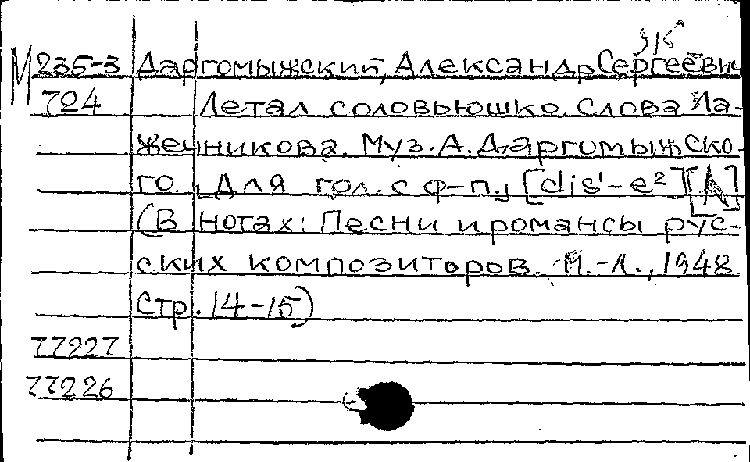 М 235-3 Даргомыжский, Александр Сергеевич
704 Летал соловьюшко. Слова Ла-
жечникова. Муз. А. Даргомыжско-
го. Для гол. с ф-п., [dis'-e²]
(В нотах: Песни и романсы рус-
ских композиторов. М.-Л., 1948
стр. 14-15)
77227
77226